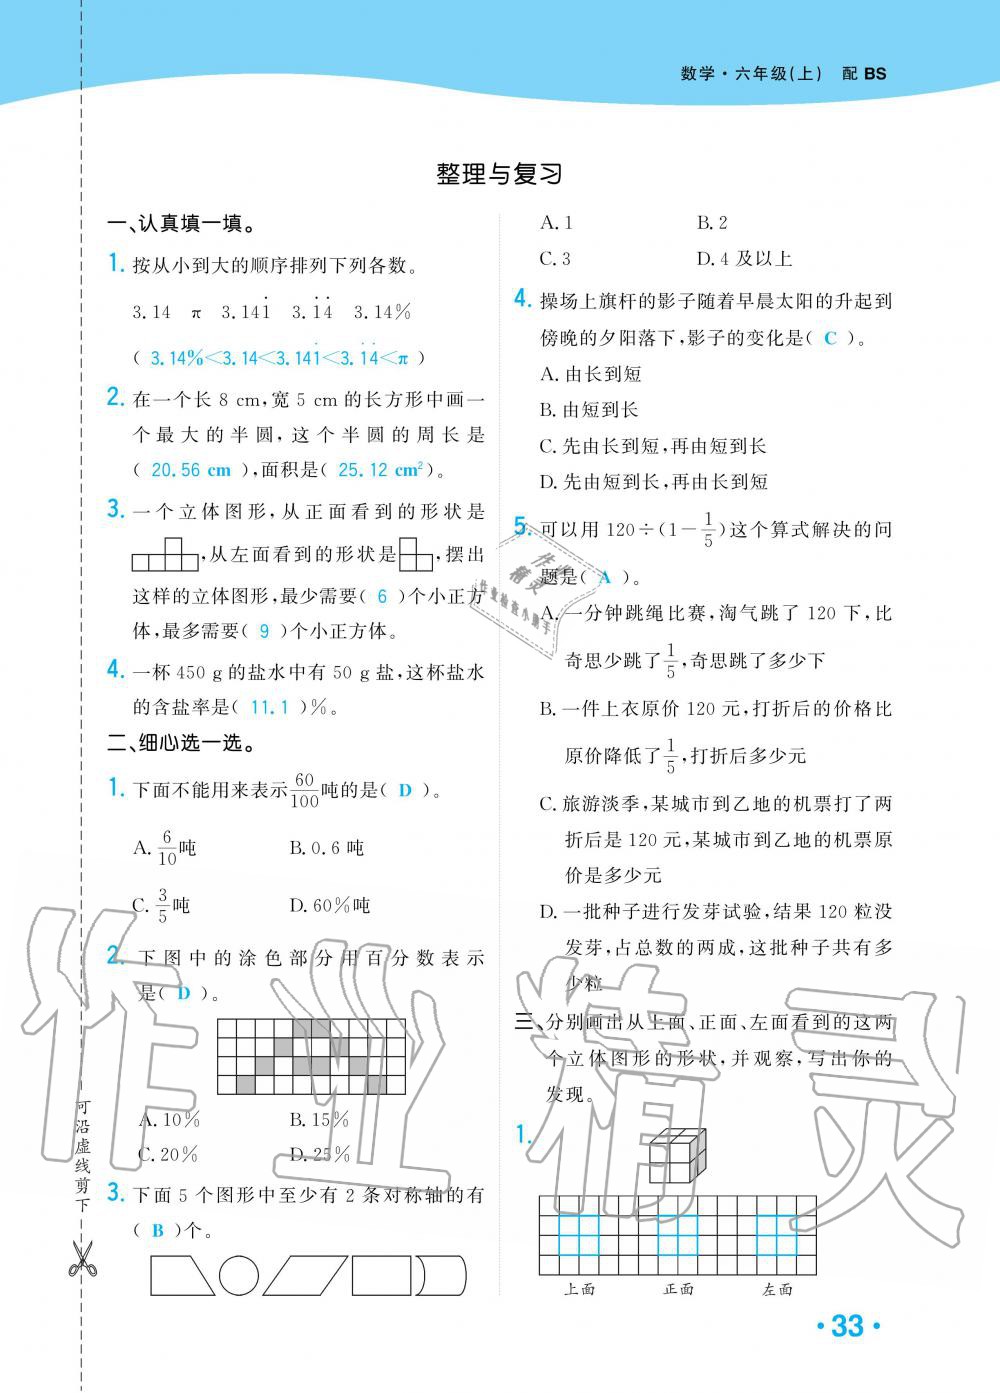 数学·六年级(上) 配 BS
整理与复习
一、认真填一填。
1. 按从小到大的顺序排列下列各数。
3.14 π 3.141̇ 3.1̇4̇ 3.14%
( 3.14%<3.14<3.141̇<3.1̇4̇<π )
2. 在一个长 8 cm,宽 5 cm 的长方形中画一
个最大的半圆,这个半圆的周长是
( 20.56 cm ),面积是( 25.12 cm²)。
3. 一个立体图形,从正面看到的形状是
,从左面看到的形状是 ,摆出
这样的立体图形,最少需要( 6 )个小正方
体,最多需要( 9 )个小正方体。
4. 一杯 450 g 的盐水中有 50 g 盐,这杯盐水
的含盐率是( 11.1 )%。
二、细心选一选。
1. 下面不能用来表示60/100吨的是( D )。
A. 6/10吨 B. 0.6 吨
C. 3/5吨 D. 60%吨
2. 下图中的涂色部分用百分数表示
是( D )。
A. 10% B. 15%
C. 20% D. 25%
3. 下面 5 个图形中至少有 2 条对称轴的有
( B )个。
A. 1 B. 2
C. 3 D. 4 及以上
4. 操场上旗杆的影子随着早晨太阳的升起到
傍晚的夕阳落下,影子的变化是( C )。
A. 由长到短
B. 由短到长
C. 先由长到短,再由短到长
D. 先由短到长,再由长到短
5. 可以用 120÷(1-1/5)这个算式解决的问
题是( A )。
A. 一分钟跳绳比赛,淘气跳了 120 下,比
奇思少跳了1/5,奇思跳了多少下
B. 一件上衣原价 120 元,打折后的价格比
原价降低了1/5,打折后多少元
C. 旅游淡季,某城市到乙地的机票打了两
折后是 120 元,某城市到乙地的机票原
价是多少元
D. 一批种子进行发芽试验,结果 120 粒没
发芽,占总数的两成,这批种子共有多
少粒
三、分别画出从上面、正面、左面看到的这两
个立体图形的形状,并观察,写出你的
发现。
1.
上面 正面 左面
可沿虚线剪下
·33·
作业精灵
作业
精灵
作业检查小助手